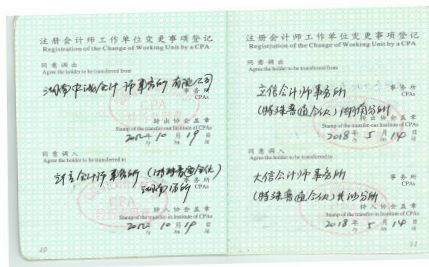 注册会计师工作单位变更事项登记
Registration of the Change of Working Unit by a CPA
同意调出
Agree the holder to be transferred from
事务所
CPAs
转出协会盖章
Stamp of the transfer-out Institute of CPAs
10月19日
同意调入
Agree the holder to be transferred to
会计师事务所(特殊普通合伙)
事务所
CPAs
转入协会盖章
Stamp of the transfer-in Institute of CPAs
10月19日
10
注册会计师工作单位变更事项登记
Registration of the Change of Working Unit by a CPA
同意调出
Agree the holder to be transferred from
立信会计师事务所
事务所
(特殊普通合伙)湖南分所
CPAs
转出协会盖章
Stamp of the transfer-out Institute of CPAs
2018年5月14日
同意调入
Agree the holder to be transferred to
大信会计师事务所
事务所
CPAs
(特殊普通合伙)
转入协会盖章
Stamp of the transfer-in Institute of CPAs
2018年5月14日
11